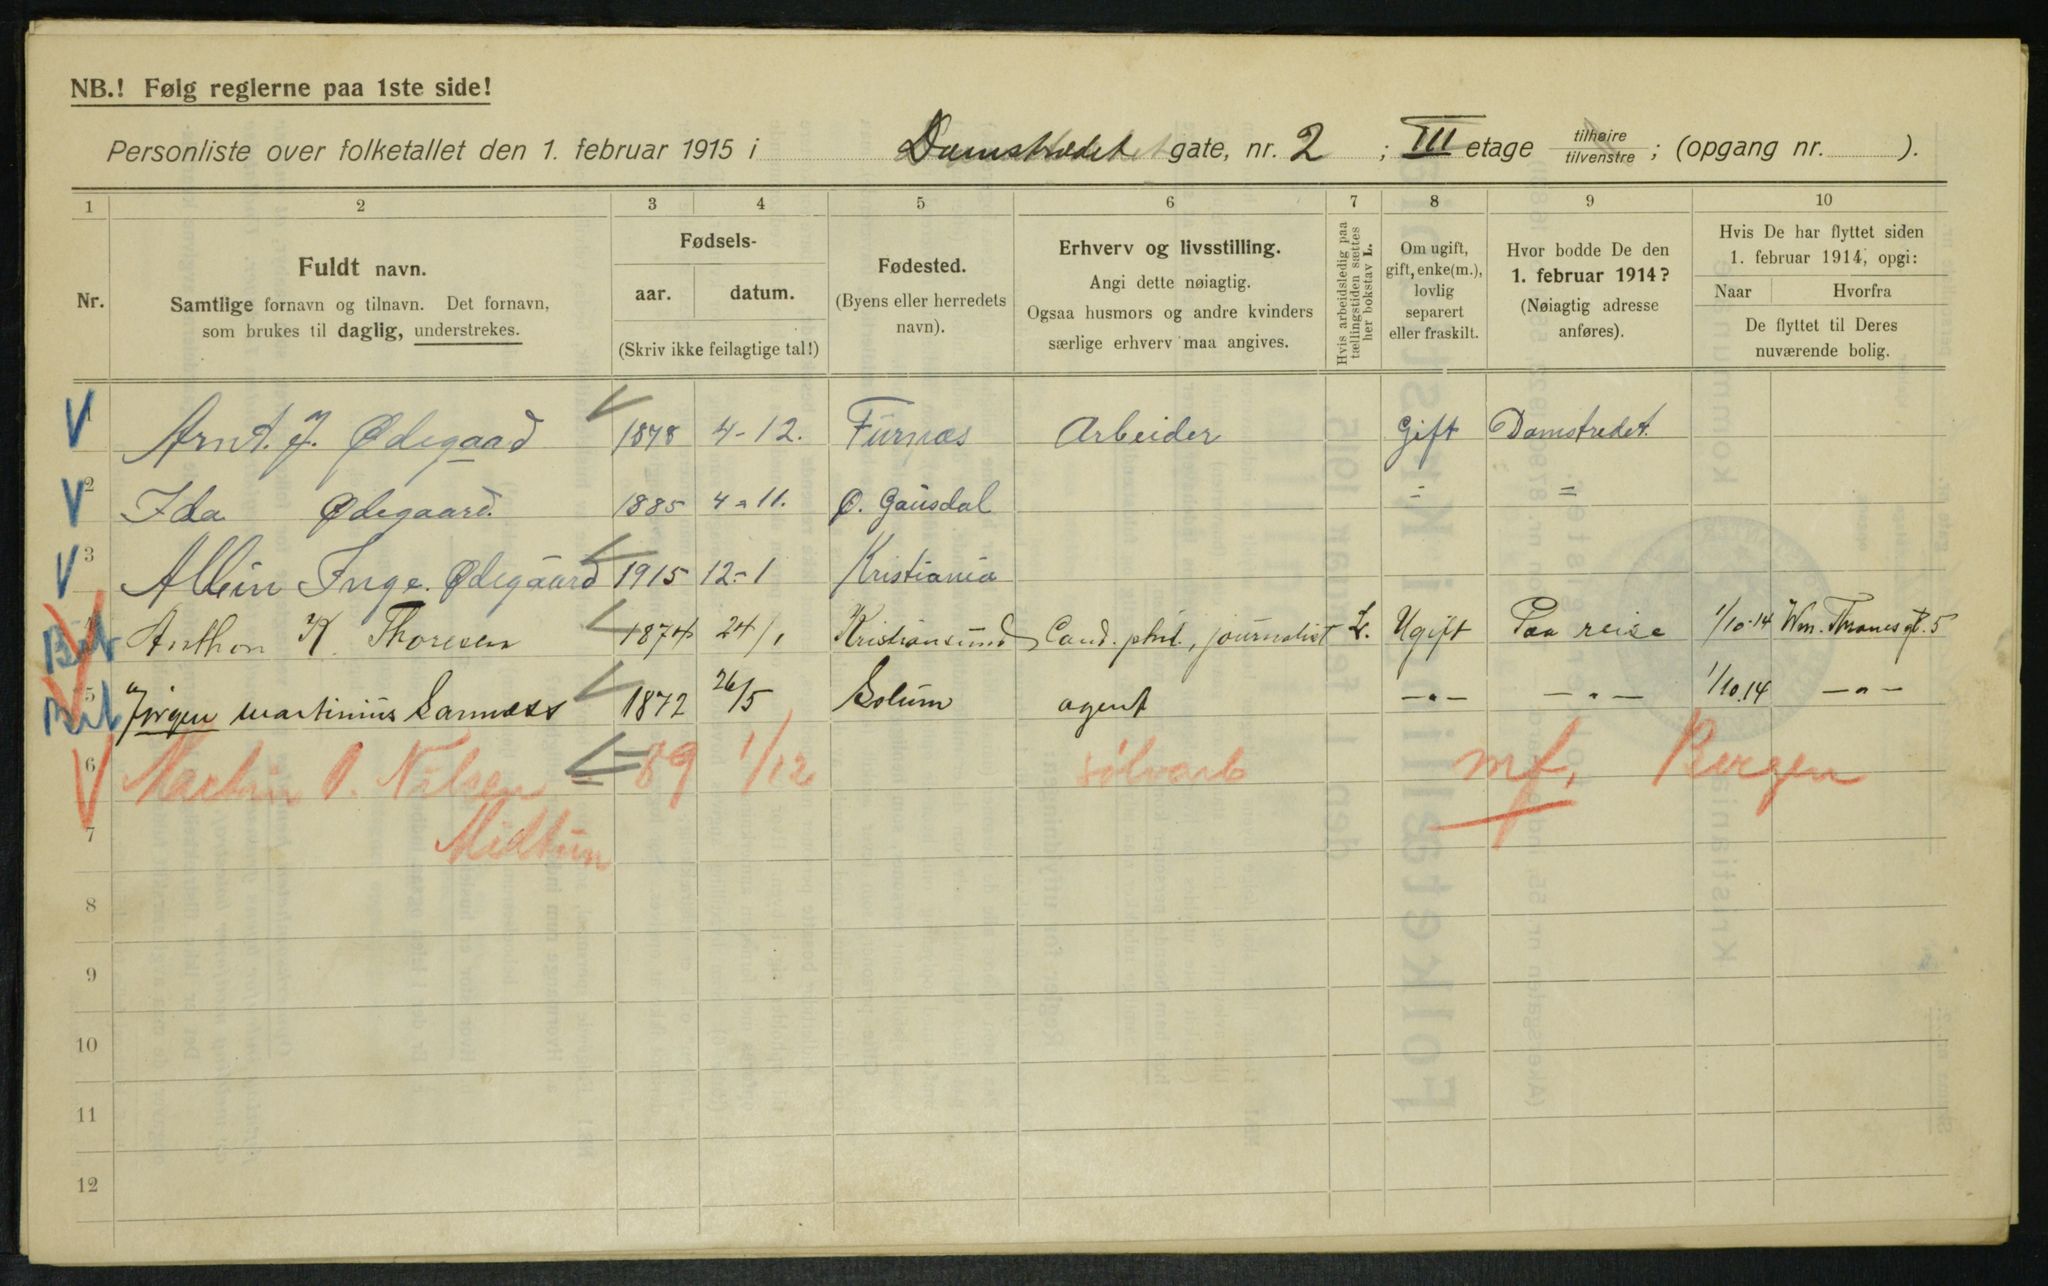 NB.! Følg reglerne paa 1ste side!
Personliste over folketallet den 1. februar 1915 i Damstrædet gate, nr. 2 ; III etage tilhøire / tilvenstre ; (opgang nr. ).
1 2 3 4 5 6 7 8 9 10
Nr.
Fuldt navn.
Samtlige fornavn og tilnavn. Det fornavn,
som brukes til daglig, understrekes.
Fødsels-
aar. datum.
(Skriv ikke feilagtige tal!)
Fødested.
(Byens eller herredets
navn).
Erhverv og livsstilling.
Angi dette nøiagtig.
Ogsaa husmors og andre kvinders
særlige erhverv maa angives.
Hvis arbeidsledig paa
tællingstiden sættes
her bokstav L.
Om ugift,
gift, enke(m.),
lovlig
separert
eller fraskilt.
Hvor bodde De den
1. februar 1914?
(Nøiagtig adresse
anføres).
Hvis De har flyttet siden
1. februar 1914, opgi:
Naar Hvorfra
De flyttet til Deres
nuværende bolig.
V 1 Arnt. J. Ødegaard 1878 4-12. Furnæs Arbeider Gift Damstredet.
V 2 Ida Ødegaard. 1885 4=11. Ø. Gausdal = =
V 3 Inge. Ødegaard 1915 12-1 Kristiania
4 Anthon K Thoresen 1874 24/1 Kristiansund Cand. phil., journalist L. Ugift Paa reise 1/10-14 Wm. Thranes gt. 5
5 Jørgen Martinius Sannæss 1872 26/5 Solum agent —"— —"— 1/10.14 —"—
V 6 Martin O. Nilsen 89 1/12 sølvarb mf. Bergen
7 Midttun
8
9
10
11
12